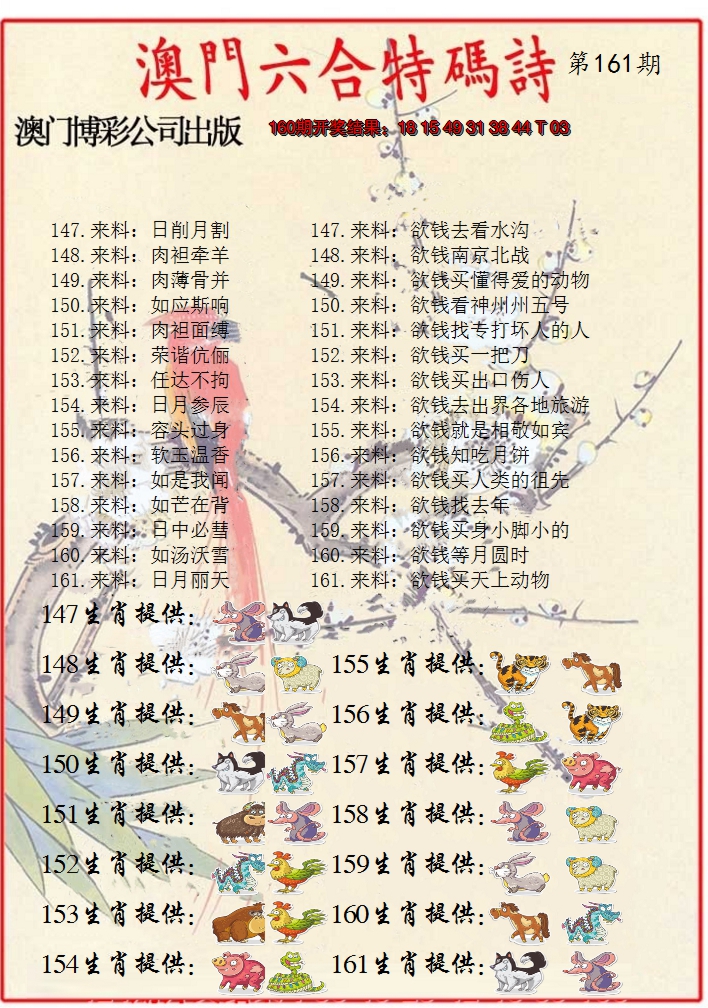 澳門六合特碼詩 第161期
澳门博彩公司出版 160期开奖结果：18 15 49 31 38 44 T 03
147.来料：日削月割 147.来料：欲钱去看水沟
148.来料：肉袒牵羊 148.来料：欲钱南京北战
149.来料：肉薄骨并 149.来料：欲钱买懂得爱的动物
150.来料：如应斯响 150.来料：欲钱看神州州五号
151.来料：肉袒面缚 151.来料：欲钱找专打坏人的人
152.来料：荣谐伉俪 152.来料：欲钱买一把刀
153.来料：任达不拘 153.来料：欲钱买出口伤人
154.来料：日月参辰 154.来料：欲钱去出界各地旅游
155.来料：容头过身 155.来料：欲钱就是相敬如宾
156.来料：软玉温香 156.来料：欲钱知吃月饼
157.来料：如是我闻 157.来料：欲钱买人类的祖先
158.来料：如芒在背 158.来料：欲钱找去年
159.来料：日中必彗 159.来料：欲钱买身小脚小的
160.来料：如汤沃雪 160.来料：欲钱等月圆时
161.来料：日月丽天 161.来料：欲钱买天上动物
147生肖提供：
148生肖提供： 155生肖提供：
149生肖提供： 156生肖提供：
150生肖提供： 157生肖提供：
151生肖提供： 158生肖提供：
152生肖提供： 159生肖提供：
153生肖提供： 160生肖提供：
154生肖提供： 161生肖提供：